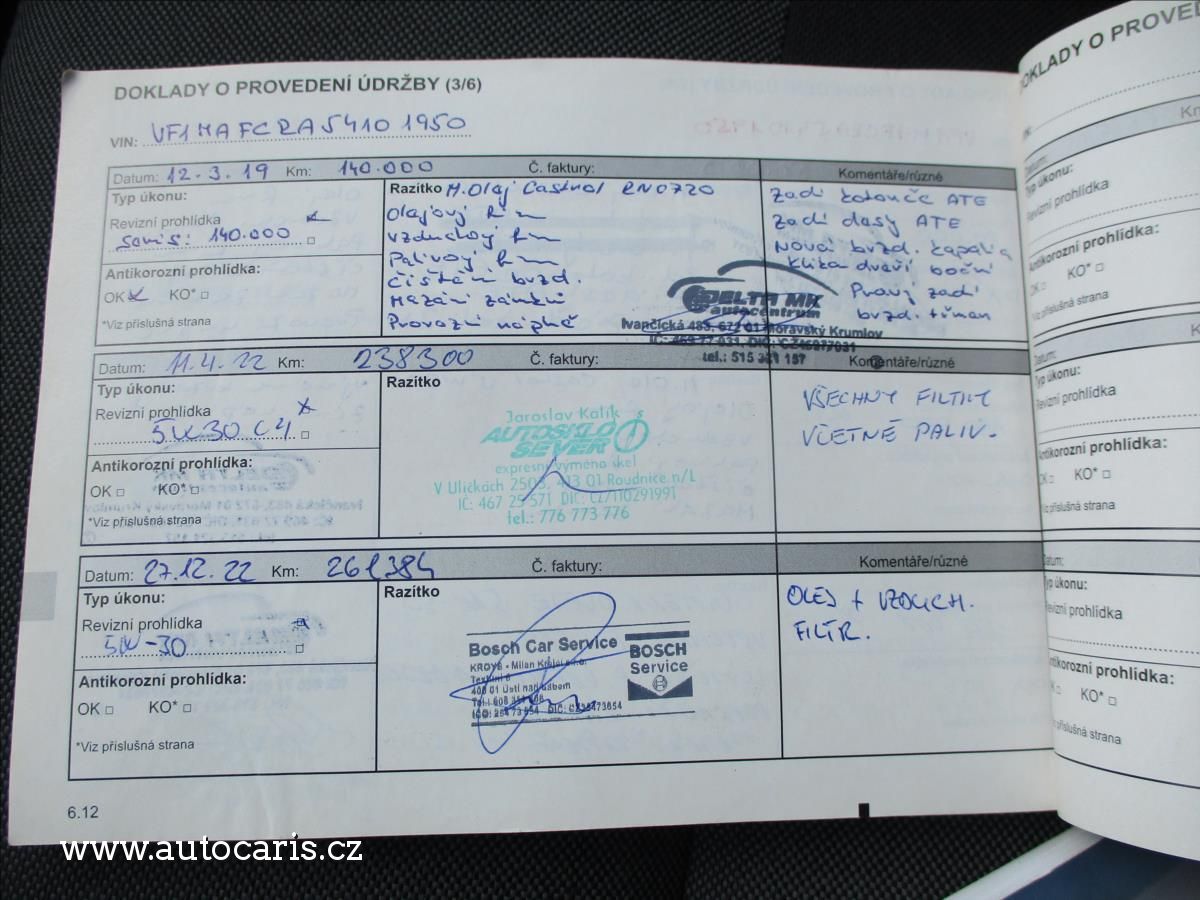 DOKLADY O PROVEDENÍ ÚDRŽBY (3/6)
VIN: VF1MAFCRA54101950
Datum: 12.3.19 Km: 140.000 Č. faktury: Komentáře/různé
Typ úkonu:
Revizní prohlídka
servis: 140.000
Antikorozní prohlídka:
OK KO*
*Viz příslušná strana
Razítko M.Olej Castrol RN0720
Olejový
Vzduchový
Palivový
Čištění brzd.
Mazání zámků
Provozní náplně
Zadí kotouče ATE
Zadí dasy ATE
Nová brzd. kapalina
Klika dveří boční
Pravý zadí
brzd. třman
DELTA MK
autocentrum
Ivančická 483, 672 01 Moravský Krumlov
tel.: 515 321 157
Datum: 11.4.22 Km: 238300 Č. faktury: Komentáře/různé
Typ úkonu:
Revizní prohlídka
5W30 C4
Antikorozní prohlídka:
OK KO*
*Viz příslušná strana
Razítko
Jaroslav Kalík
AUTOSKLO
SEVER
expresní výměna skel
V Uličkách 2503, 413 01 Roudnice n/L
IČ: 467 25 571 DIČ: CZ7110291991
tel.: 776 773 776
VŠECHNY FILTRY
VČETNĚ PALIV.
Datum: 27.12.22 Km: 261384 Č. faktury: Komentáře/různé
Typ úkonu:
Revizní prohlídka
5W-30
Antikorozní prohlídka:
OK KO*
*Viz příslušná strana
Razítko
Bosch Car Service
BOSCH
Service
400 01 Ústí nad Labem
OLEJ + VZDUCH.
FILTR.
6.12
DOKLADY O PROVEDE
Datum:
Typ úkonu:
Revizní prohlídka
Antikorozní prohlídka:
KO*
příslušná strana
Typ úkonu:
Revizní prohlídka
Antikorozní prohlídka:
KO*
příslušná strana
Typ úkonu:
Revizní prohlídka
Antikorozní prohlídka:
KO*
příslušná strana
www.autocaris.cz